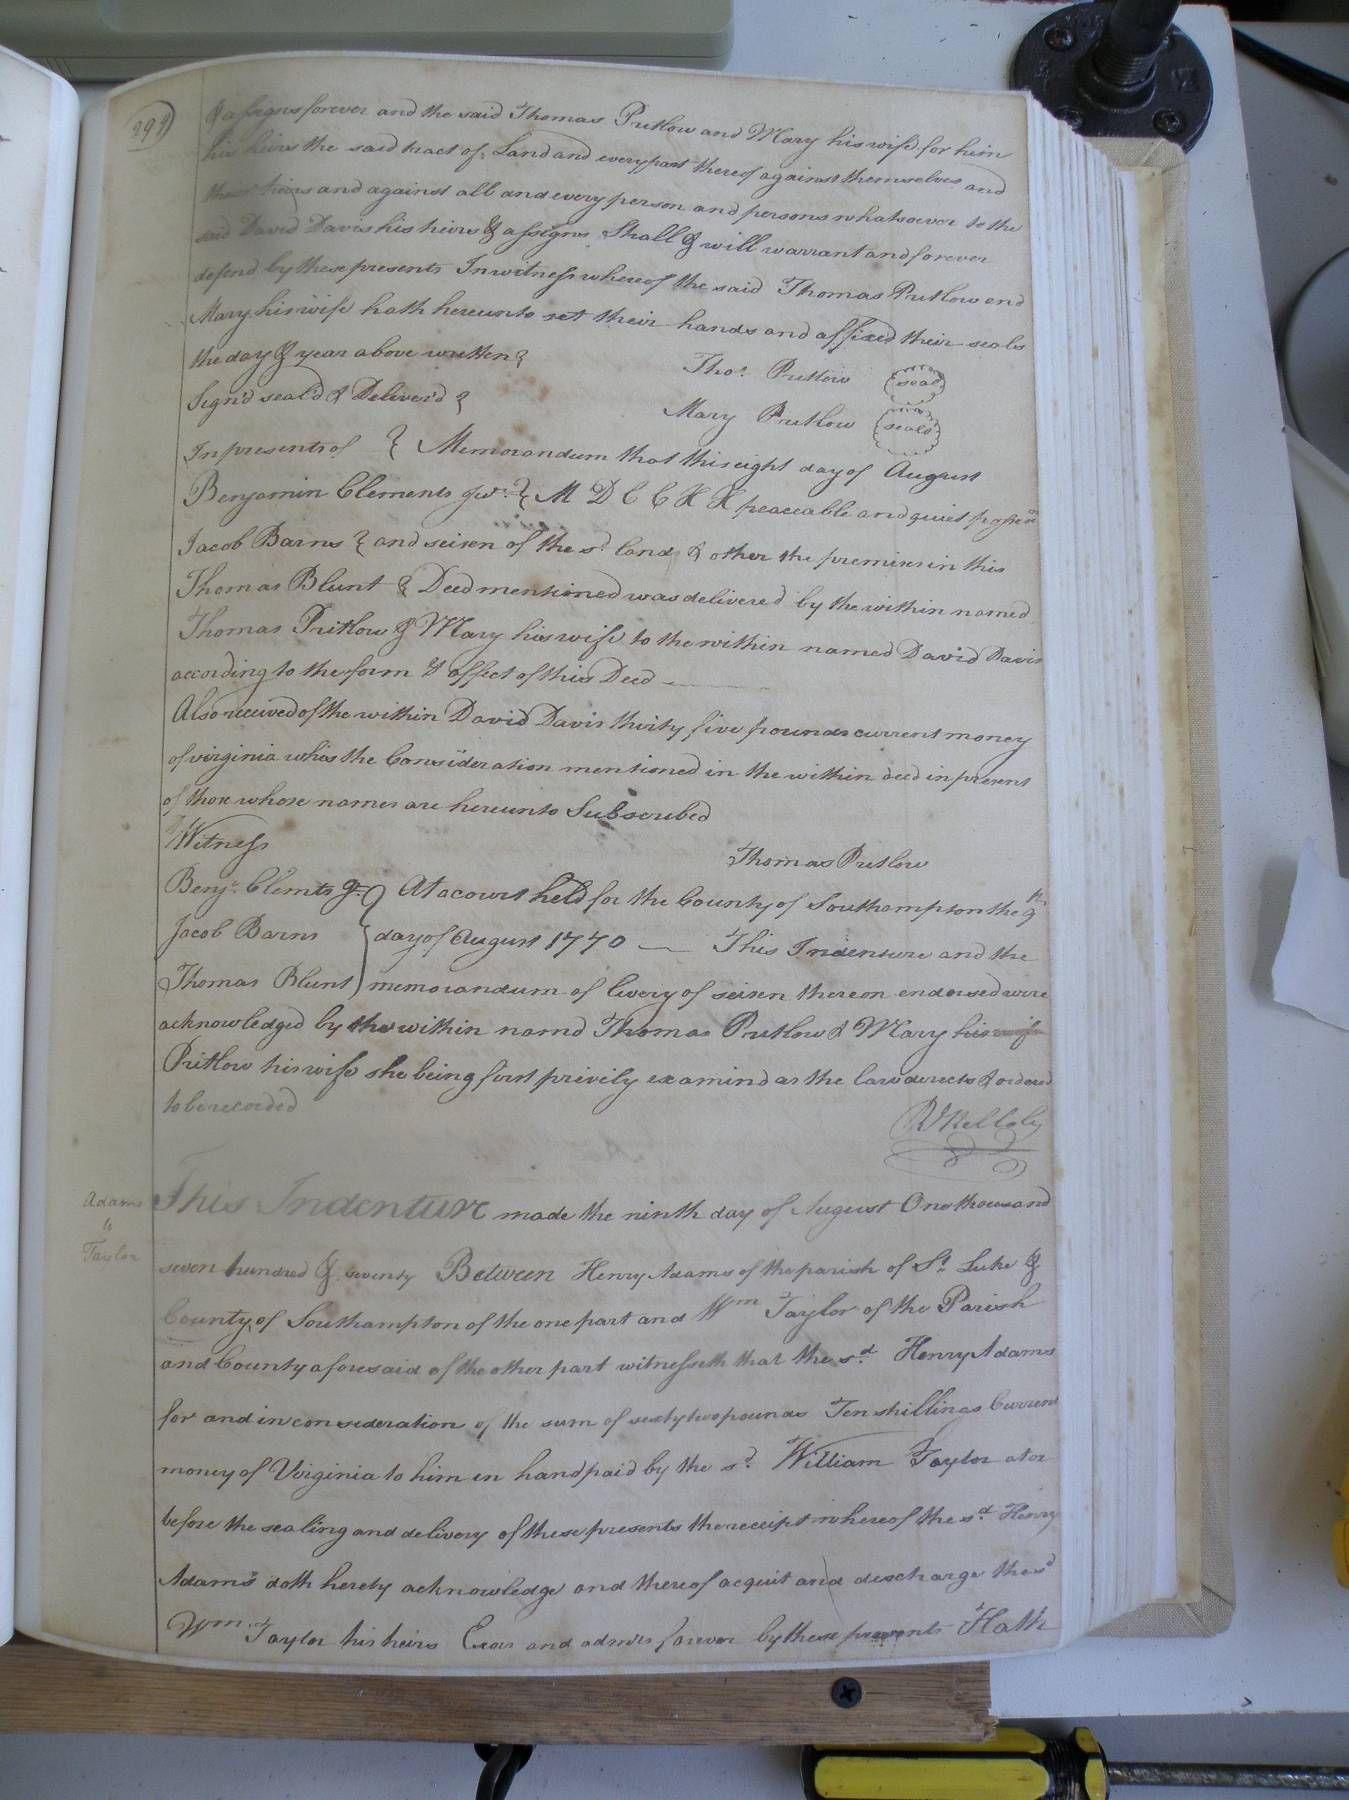 & assigns forever and the said Thomas Pretlow and Mary his wife for him
his heirs the said tract of Land and every part thereof against themselves and
their heirs and against all and every person and persons whatsoever to the
said David Davis his heirs & assigns Shall & will warrant and forever
defend by these presents In witness whereof the said Thomas Pretlow and
Mary his wife hath hereunto set their hands and affixed their seals
the day & year above written
Thos. Pretlow seal
Sign'd seal'd & Deliver'd
Mary Pretlow seal
In presents of Memorandum that this eight day of August
Benjamin Clements Jur. M D C C X X peaceable and quiet posson
Jacob Barns and seisen of the sd. land & other the premises in this
Thomas Blunt Deed mentioned was delivered by the within named
Thomas Pretlow & Mary his wife to the within named David Davis
according to the form & affect of this Deed
Also received of the within David Davis thirty five pounds current money
of virginia whis the Consideration mentioned in the within deed in present
of those whose names are hereunto Subscribed
Witness
Thomas Pretlow
Benjn. Clemts At a court held for the County of Southampton the 9th
Jacob Barns day of August 1770 This Indenture and the
Thomas Blunt memorandum of livery of seisen thereon endorsed were
acknowledged by the within namd Thomas Pretlow & Mary his wife
Pretlow his wife she being first privily examind as the law derects & ordered
to be recorded
This Indenture made the ninth day of August One thousand
Adams
to
Taylor
seven hundred & seventy Between Henry Adams of the parish of St. Luke &
County of Southampton of the one part and Wm Taylor of the Parish
and County aforesaid of the other part witnesseth that the sd. Henry Adams
for and in consideration of the sum of sixty two pounds Ten shillings Current
money of Virginia to him in hand paid by the sd. William Taylor at or
before the sealing and delivery of these presents the receipt whereof the sd. Henry
Adams doth hereby acknowledge and thereof acquit and discharge the sd
Wm. Taylor his heirs Exors and admrs forever by these presents Hath